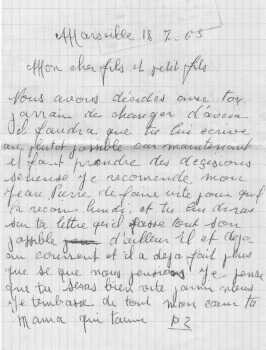 Marseille 18 7-65
Mon cher fils et petit fils
Nous avons décides avec toi
de changer d'
Il faudra que tu lui écrive
au plutot car maintenant
il faut prendre des decesions
serieuse Je recomende mon
Jean Pierre de faire vite pour qu'il
la recoin lundi. et tu lui diras
sur ta lettre qu'il fasse tout son
d'ailleur il et deja
au courrent et il a deja fait plus
que se que nous pensions Je pense
que tu seras bien vite parmi nous
Je tembrasse de tout mon cœur ta
Mama qui taime PZ